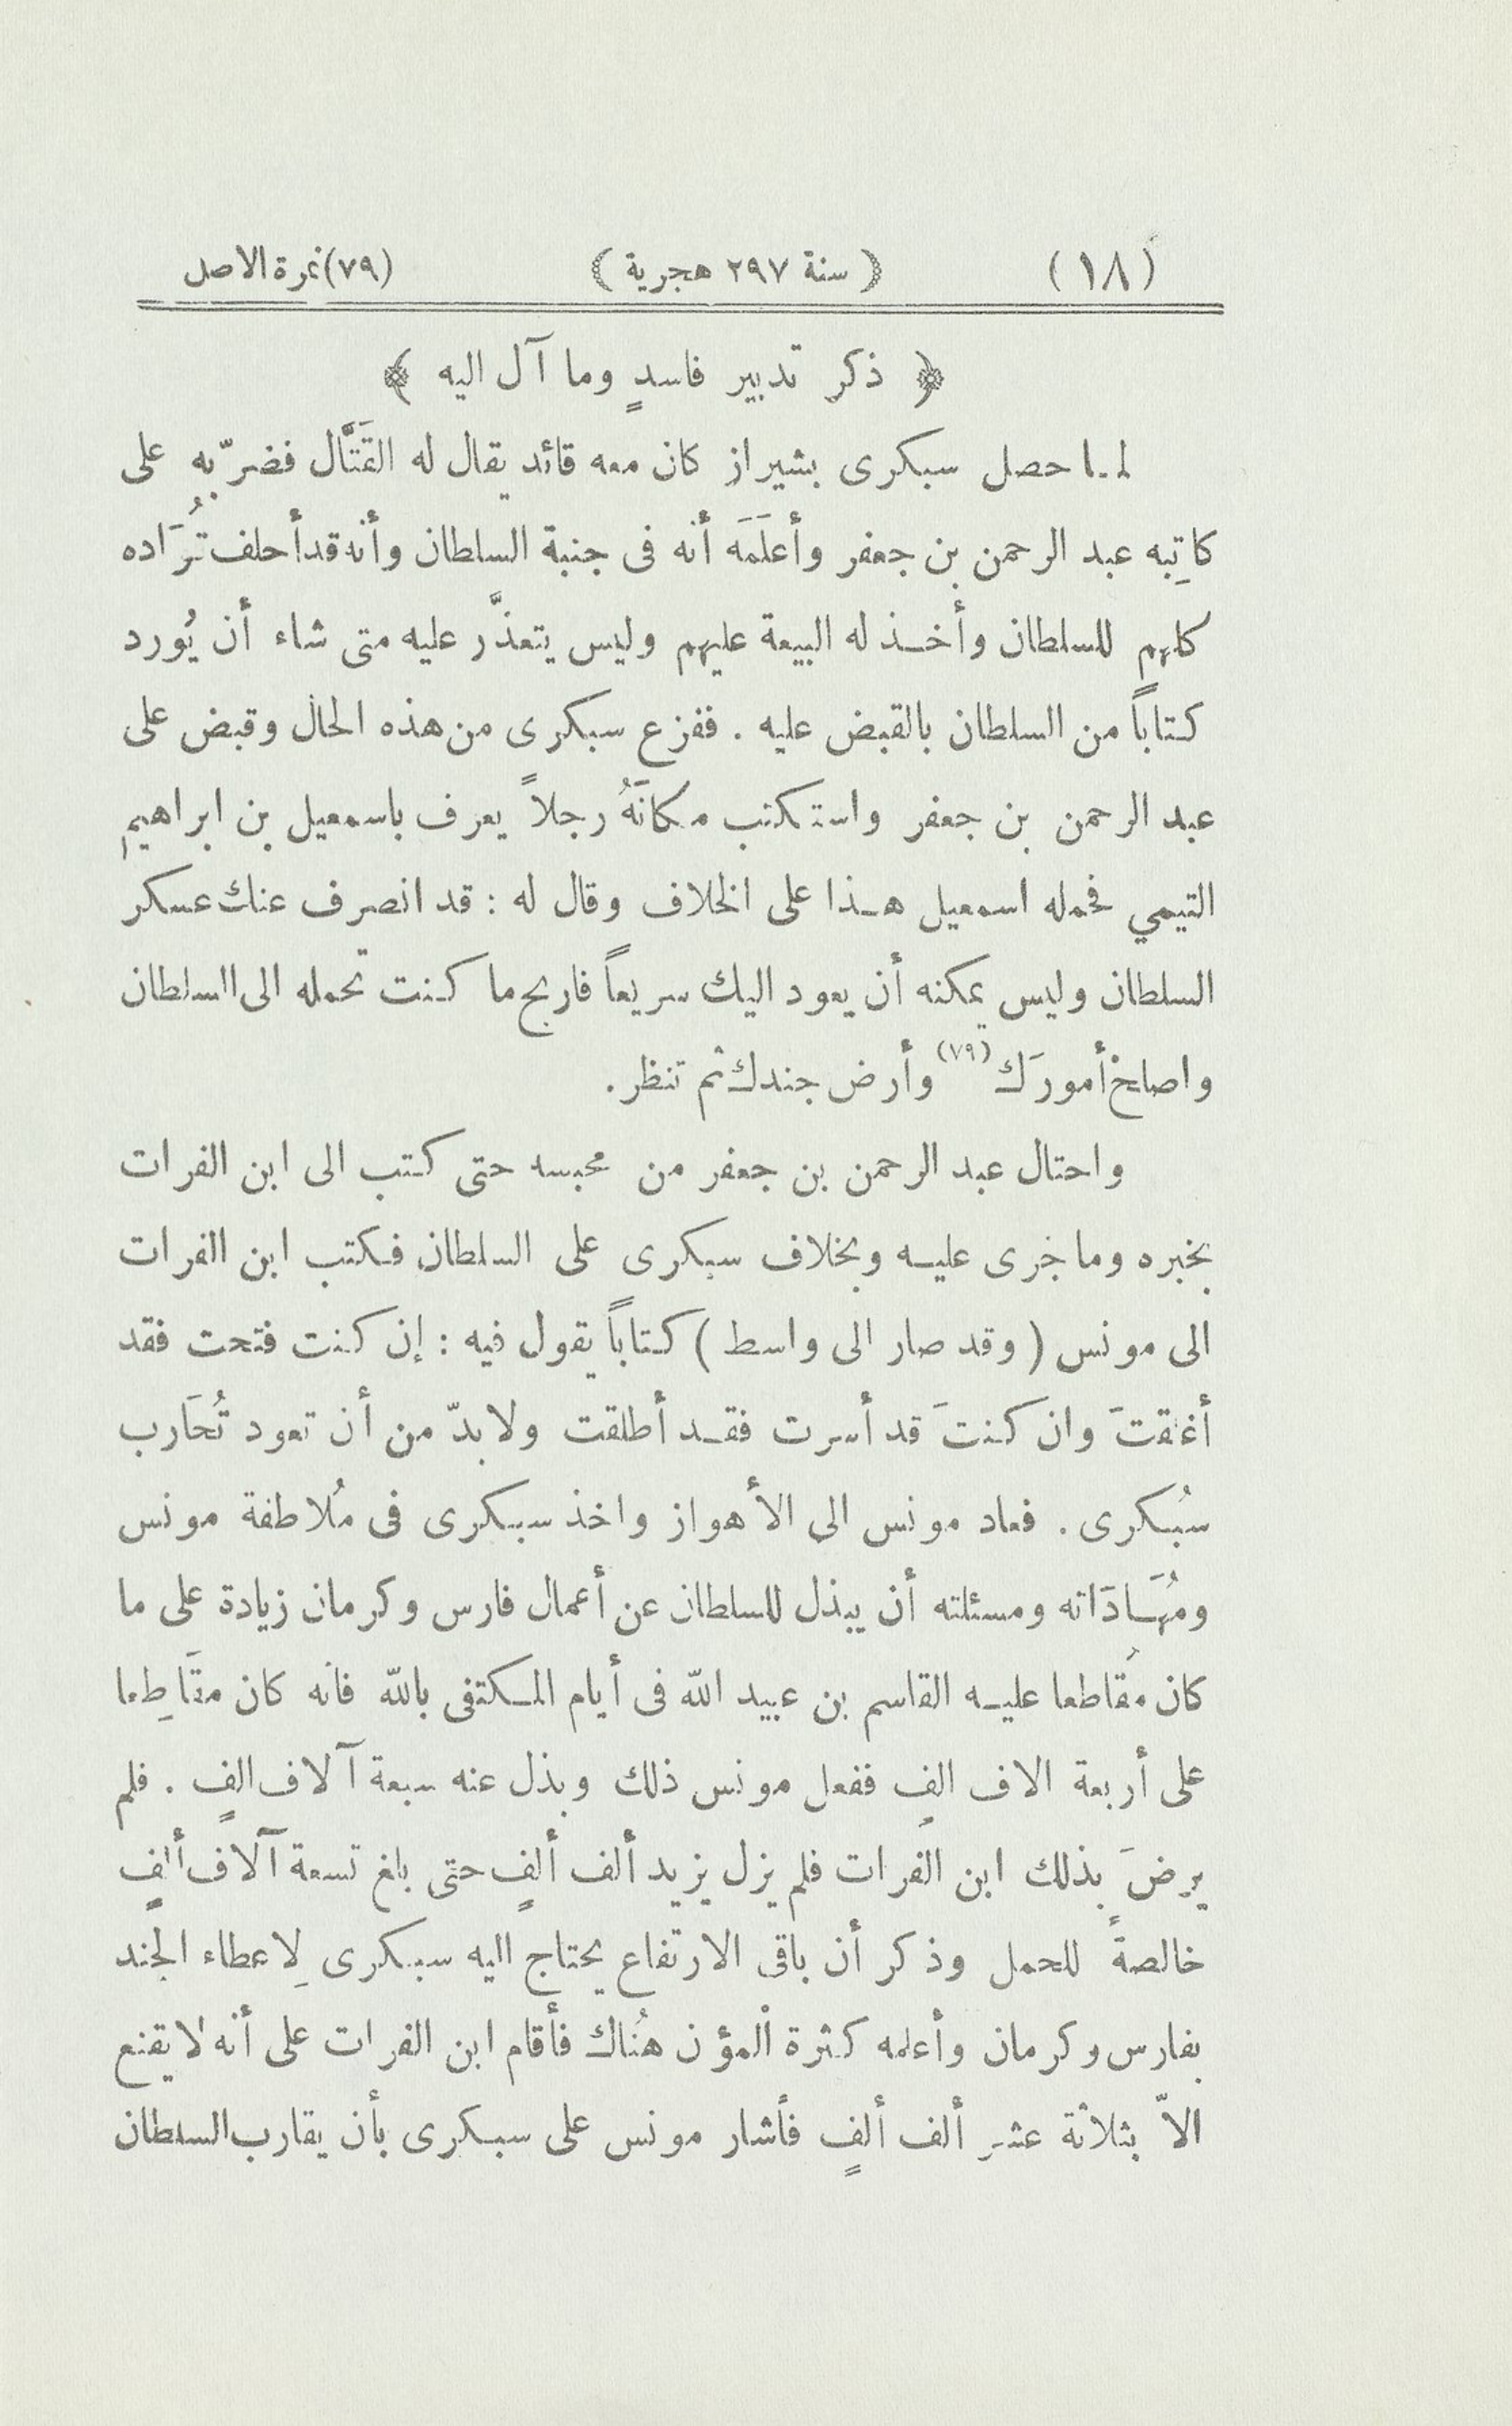 (١٨) ﴿ سنة ٢٩٧ هجرية ﴾ (٧٩)نمرة الاصل
﴿ ذكر تدبير فاسدٍ وما آل اليه ﴾
لما حصل سبكرى بشيراز كان معه قائد يقال له القَتَّال فضرّ به على
كاتِبه عبد الرحمن بن جعفر وأعلَمَه أنه فى جنبة السلطان وأنه قد أحلف قُوَّاده
كلهم للسلطان وأخذ له البيعة عليهم وليس يتعذَّر عليه متى شاء أن يُورد
كتاباً من السلطان بالقبض عليه . ففزع سبكرى من هذه الحال وقبض على
عبد الرحمن بن جعفر واستكتب مكانَهُ رجلاً يعرف باسمعيل بن ابراهيم
التيمي فحمله اسمعيل هذا على الخلاف وقال له : قد انصرف عنك عسكر
السلطان وليس يمكنه أن يعود اليك سريعاً فاربح ما كنت تحمله الى السلطان
واصلح أمورَك (٧٩) وأرض جندك ثم تنظر .
واحتال عبد الرحمن بن جعفر من محبسه حتى كتب الى ابن الفرات
بخبره وما جرى عليه وبخلاف سبكرى على السلطان فكتب ابن الفرات
الى مونس ( وقد صار الى واسط ) كتاباً يقول فيه : إن كنت فتحت فقد
أغلقتَ وان كنتَ قد أسرت فقد أطلقت ولا بدّ من أن تعود تُحَارب
سُبكرى . فعاد مونس الى الأهواز واخذ سبكرى فى مُلاطفة مونس
ومُهَادَاته ومسئلته أن يبذل للسلطان عن أعمال فارس وكرمان زيادة على ما
كان مُقاطعا عليه القاسم بن عبيد الله فى أيام المكتفى بالله فانه كان مقَاطِعا
على أربعة الاف الفِ ففعل مونس ذلك وبذل عنه سبعة آلاف الفٍ . فلم
يرضَ بذلك ابن الفرات فلم يزل يزيد ألف ألفٍ حتى بلغ تسعة آلاف ألفٍ
خالصةً للحمل وذكر أن باقى الارتفاع يحتاج اليه سبكرى لِاعطاء الجند
بفارس وكرمان وأعلمه كثرة المؤن هُناك فأقام ابن الفرات على أنه لا يقنع
الاّ بثلاثة عشر ألف ألفٍ فأشار مونس على سبكرى بأن يقارب السلطان